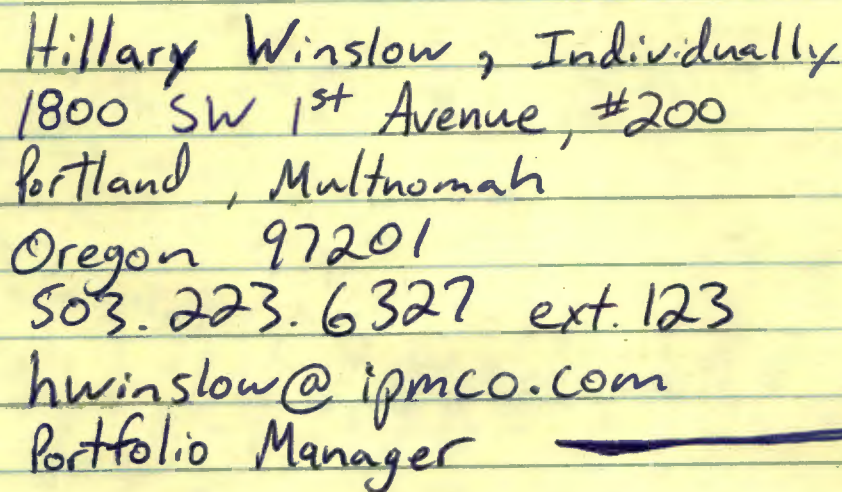 Hillary Winslow, Individually
1800 SW 1st Avenue, #200
Portland, Multnomah
Oregon 97201
503.223.6327 ext. 123
hwinslow@ipmco.com
Portfolio Manager